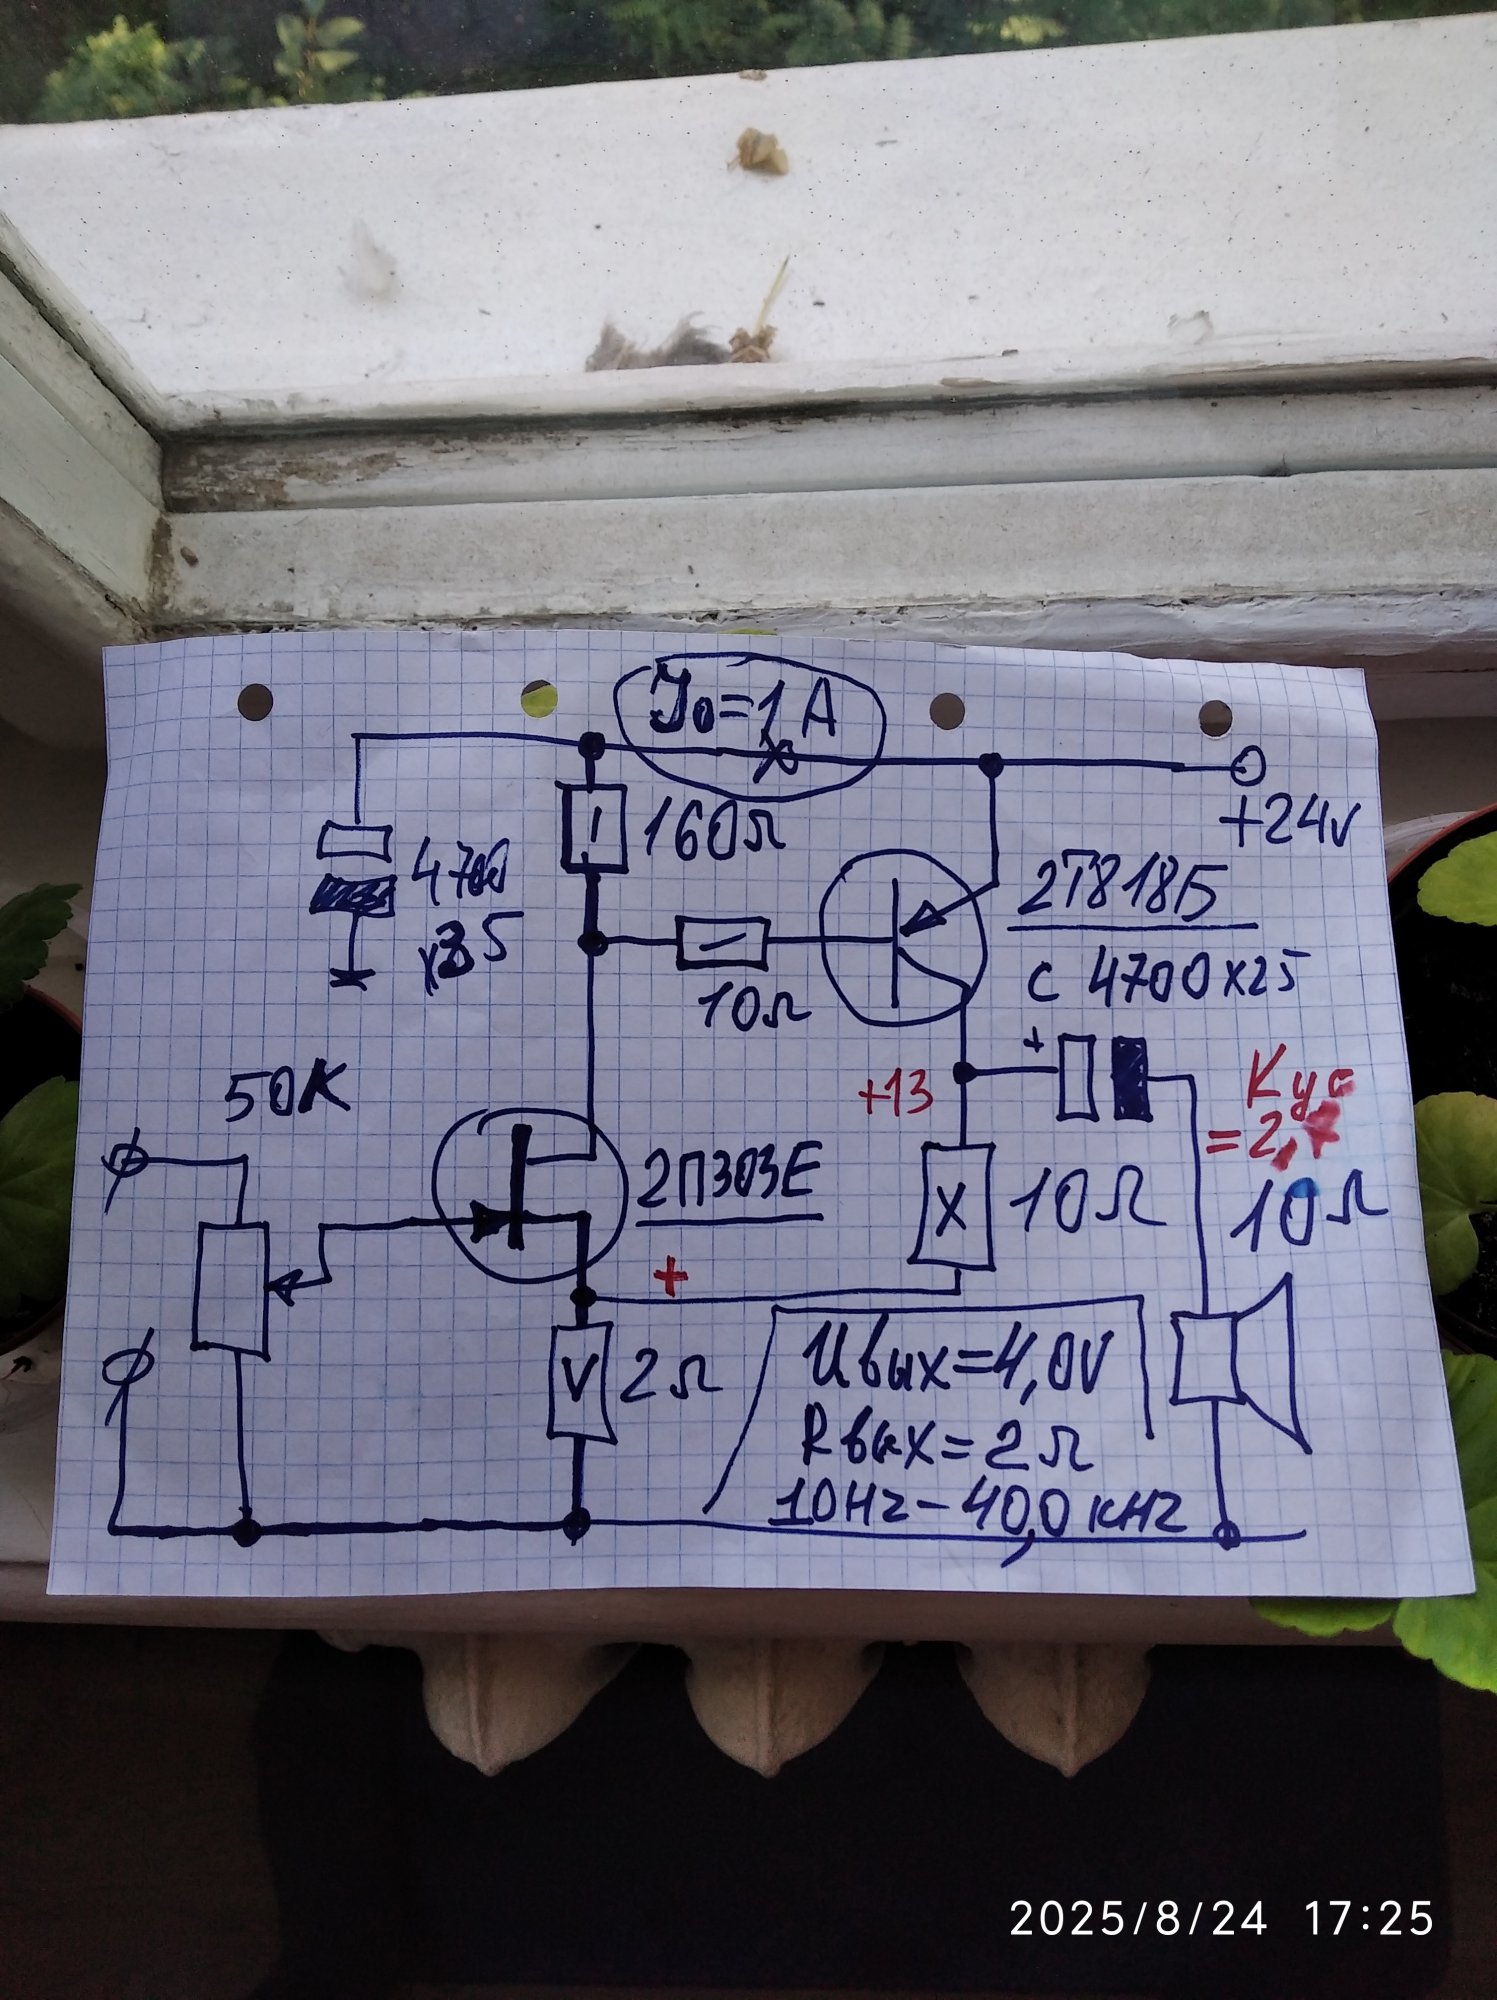 I₀=1A
+24v
160Ω
4700
x35
2T818Б
С 4700x25
10Ω
50К
+
+13
Кус
=2,7
2П303Е
10Ω
10Ω
+
X
V 2Ω
Uвых=4,0V
Rвых=2Ω
10Hz-40,0кHz
2025/8/24 17:25